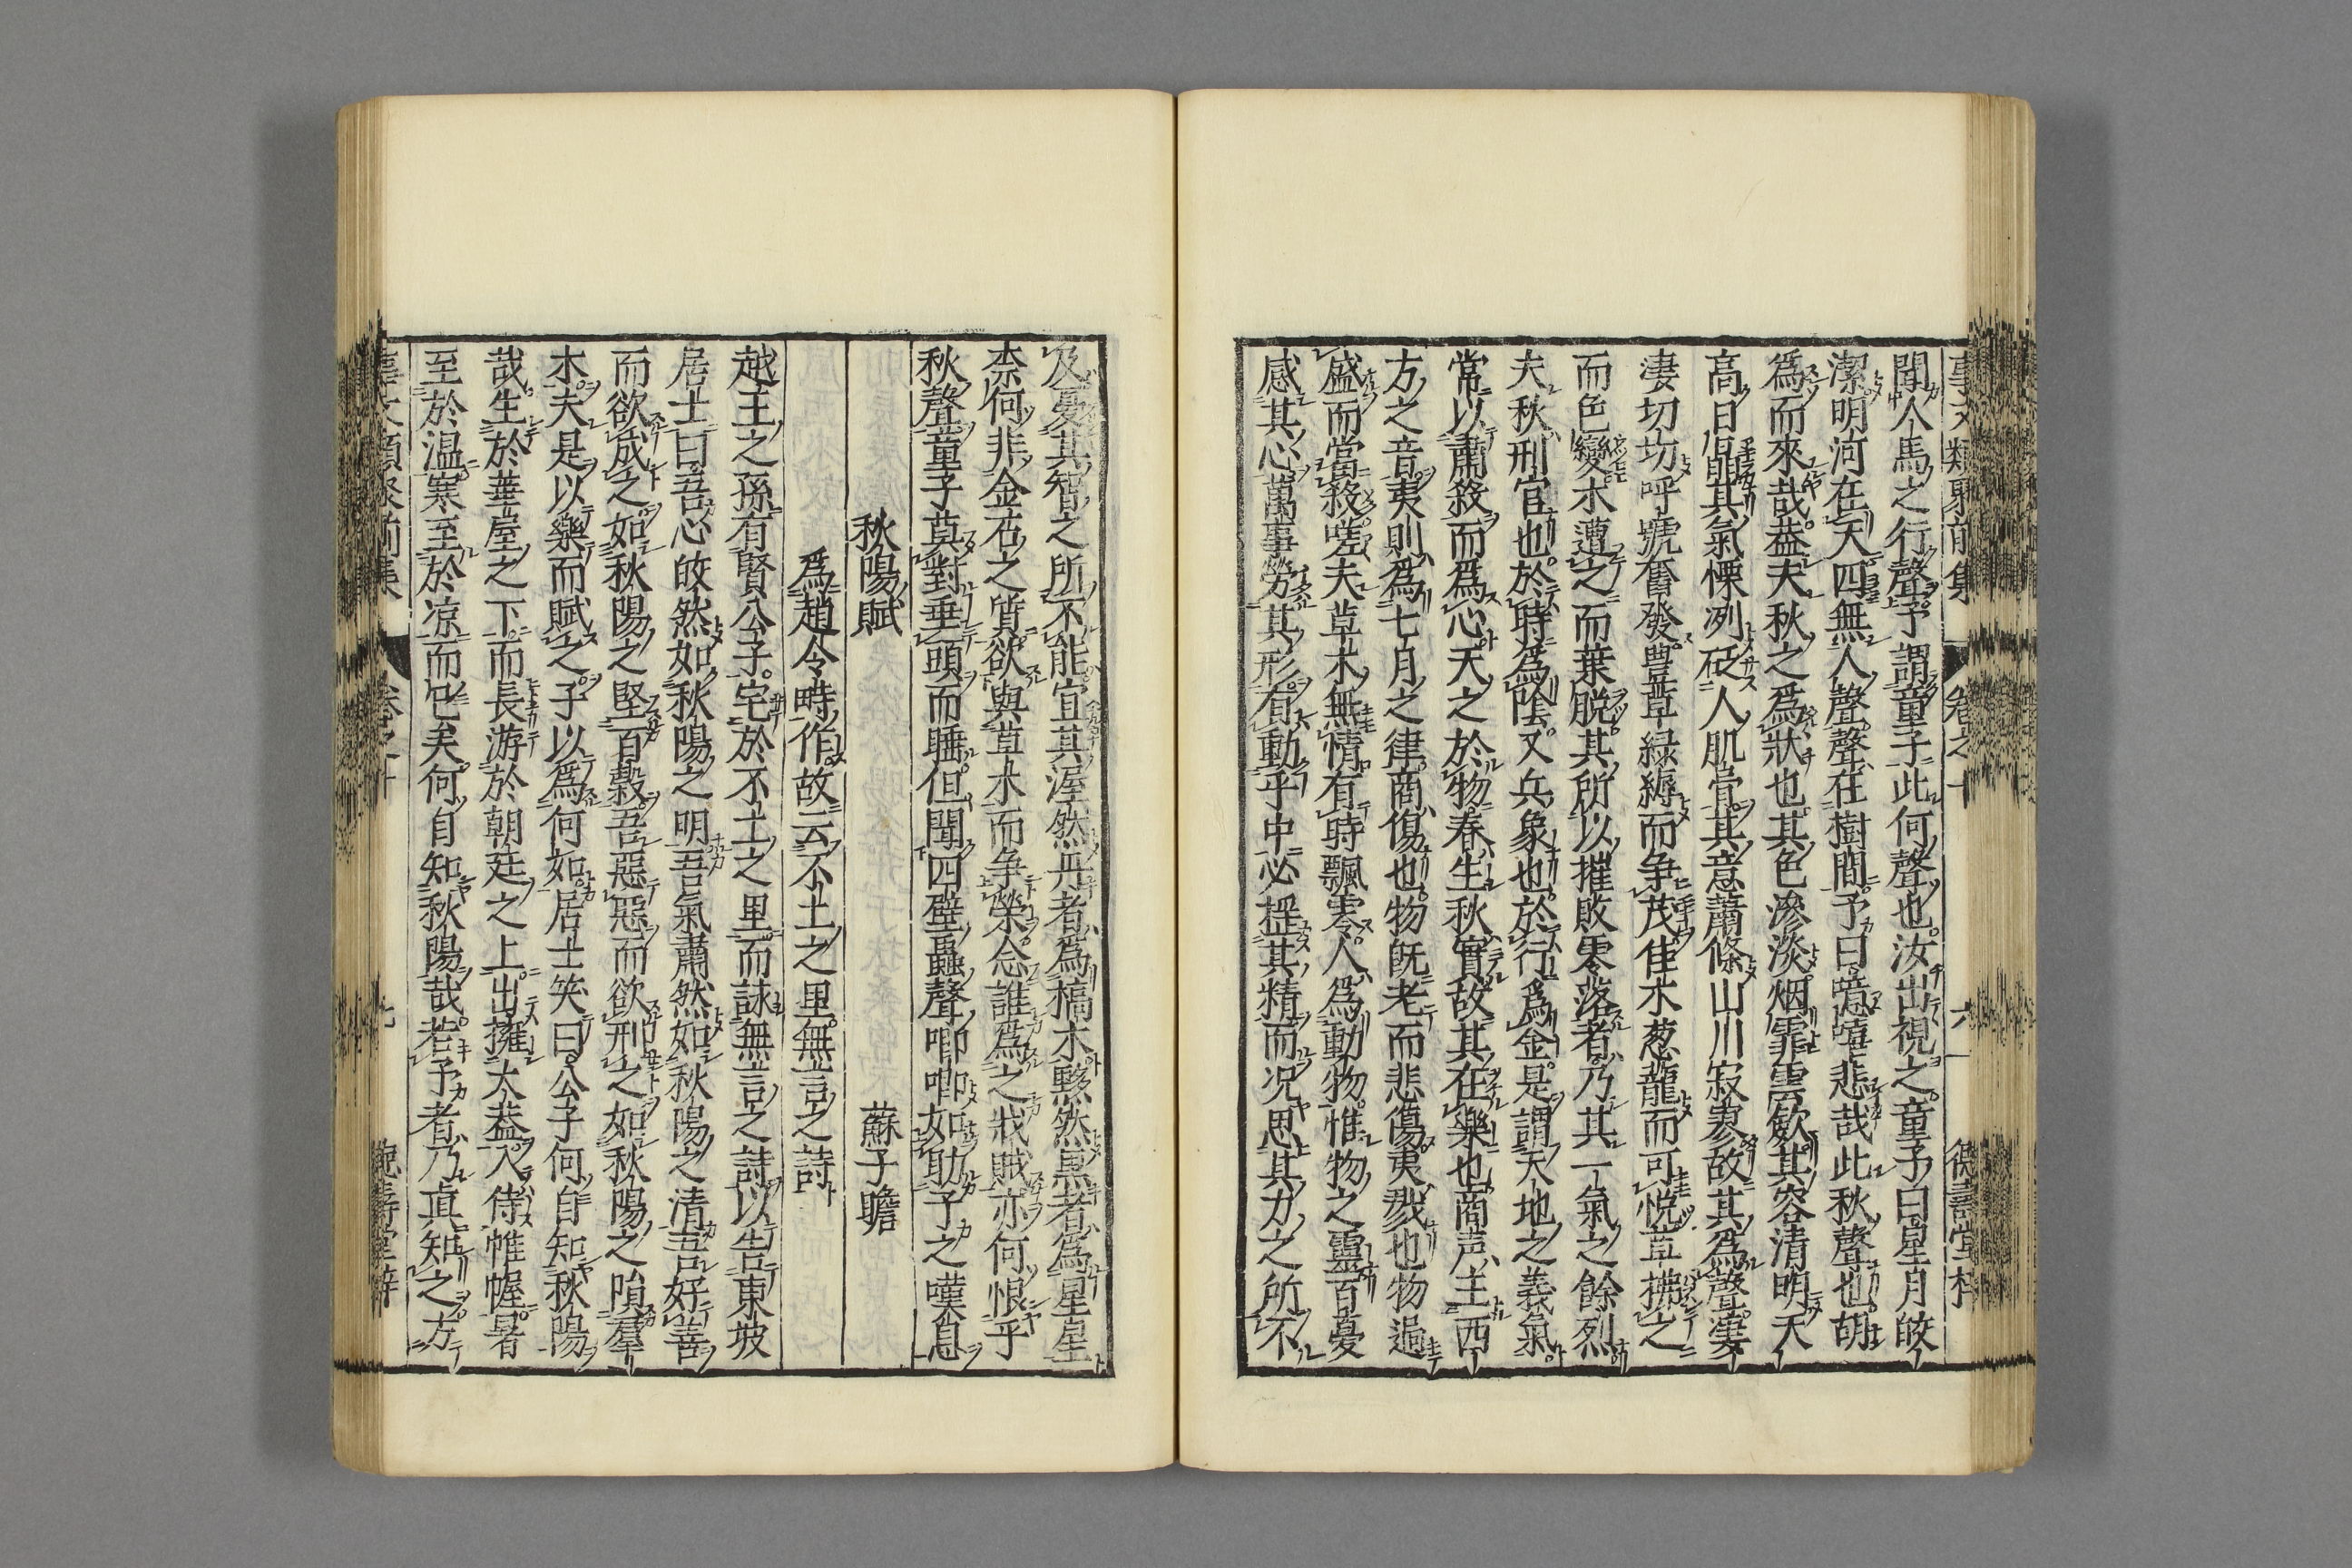 事文類聚前集 卷之十 六 德壽堂梓
聞人馬之行聲予謂童子此何聲也汝出視之童子曰星月皎
潔明河在天四無人聲聲在樹間予曰噫嘻悲哉此秋聲也胡
爲而來哉蓋夫秋之爲狀也其色滲淡烟霏雲歛其容清明天
高日晶其氣慄冽砭人肌骨其意蕭條山川寂寥故其爲聲凄
凄切切呼號奮發豊草緑縟而争茂佳木葱蘢而可悦草拂之
而色變木遭之而葉脱其所以摧敗零落者乃其一氣之餘烈
夫秋刑官也於時爲隂又兵象也於行爲金是謂天地之義氣
常以肅殺而爲心天之於物春生秋實故其在樂也商声主西
方之音夷則爲七月之律商傷也物既老而悲傷夷戮也物過
盛而當殺嗟夫草木無情有時飄零人爲動物惟物之靈百憂
感其心萬事勞其形有動乎中必揺其精而况思其力之所不
及憂其智之所不能宜其渥然丹者爲槁木黟然黒者爲星星
柰何非金石之質欲與草木而争榮念誰爲之戕賊亦何恨乎
秋聲童子莫對垂頭而睡但聞四壁蟲聲唧唧如助予之嘆息
秋陽賦 蘇子瞻
爲趙令畤作故云不土之里無言之詩
越王之孫有賢公子宅於不土之里而詠無言之詩以告東坡
居士曰吾心皎然如秋陽之明吾氣肅然如秋陽之清吾好善
而欲成之如秋陽之堅百穀吾惡惡而欲刑之如秋陽之隕羣
木夫是以樂而賦之子以爲何如居士笑曰公子何自知秋陽
哉生於華屋之下而長游於朝廷之上出擁大蓋入侍帷幄暑
至於温寒至於凉而已矣何自知秋陽哉若予者乃真知之方
事文類聚前集 卷之十 七 德壽堂梓